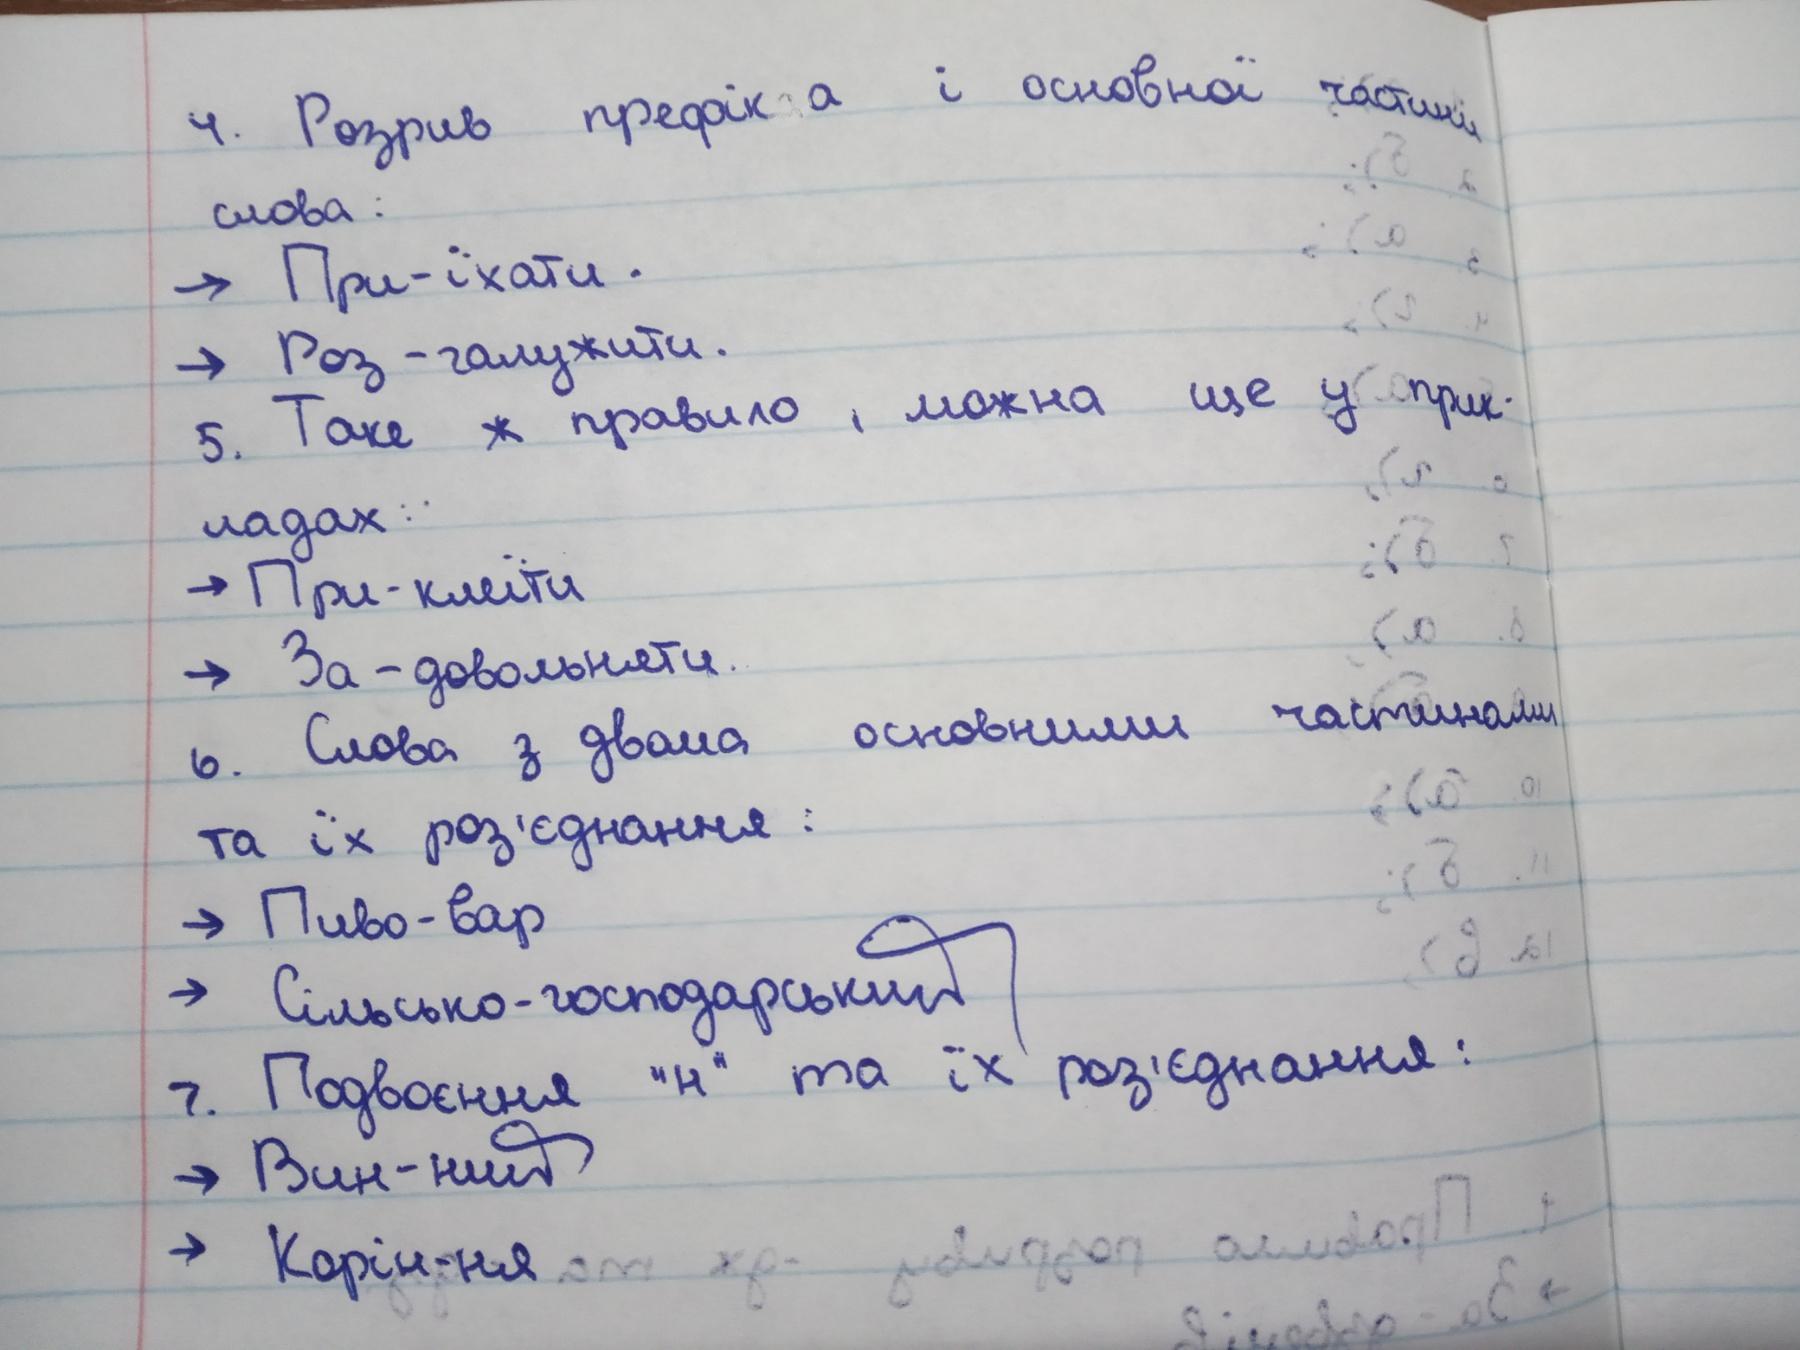 4. Розрив префікса і основної частини
слова:
→ При-їхати.
→ Роз-галужити.
5. Таке ж правило, можна ще у прик-
ладах:
→ При-клеїти
→ За-довольняти.
6. Слова з двома основними частинами
та їх роз'єднання:
→ Пиво-вар
→ Сільсько-господарський
7. Подвоєння "н" та їх роз'єднання:
→ Вин-ний
→ Корін-ня